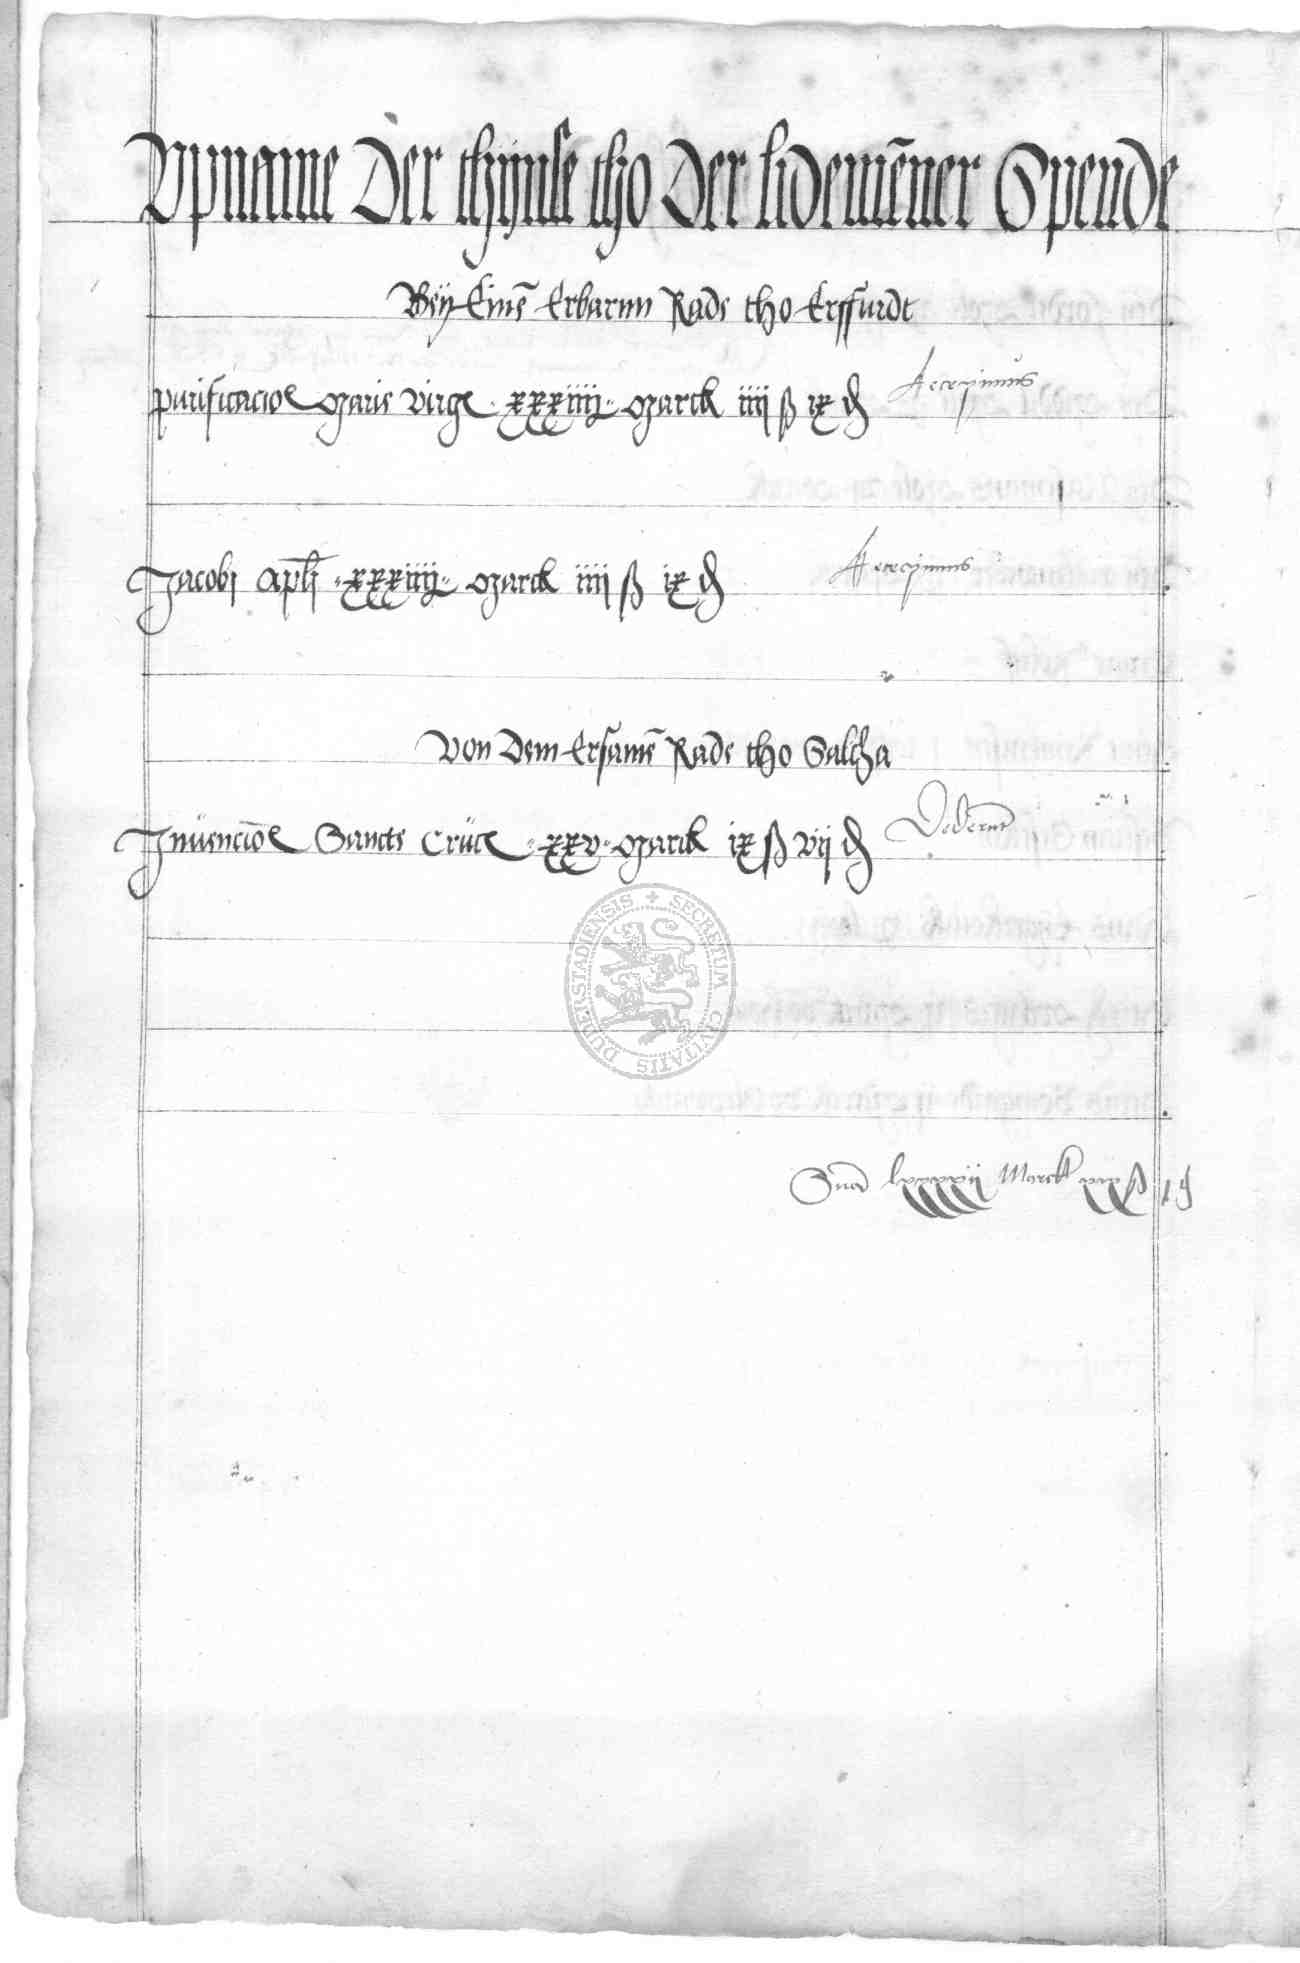 Upname Der thynse tho Der sidemēner Spende
Bey Einē Erbarnn Rade tho Erffurdt
purificacioe Marie virge xxxiiij Marck iiij ß ix ₰ Accepimus
Jacobi Apli xxxiiij Marck iiij ß ix ₰ Accepimus
Von Dem Ersamē Rade tho Saltza
Jnuencioe Sancte Cruc xxv Marck ix ß vij ₰ Dederunt
SECRETUM CIVITATIS DUDERSTADIENSIS
Marck xix ß 1 ₰